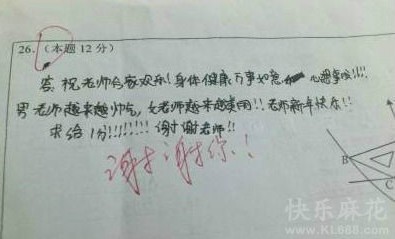 26. (本题12分)
答:祝老师合家欢乐!身体健康 万事如意 心想事成!!!!
男老师越来越帅气,女老师越来越美丽!!老师新年快乐!!
求给1分!!!!!!!谢谢老师!!
谢谢你!
B
C
快乐麻花
www.KL688.com